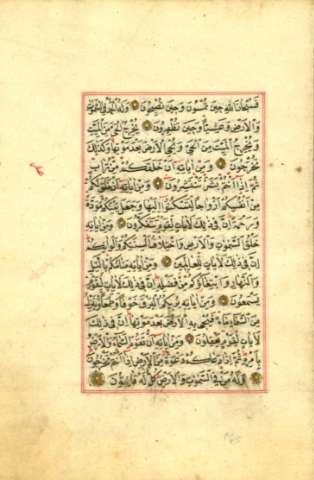 فَسُبْحَانَ اللهِ حِينَ تُمْسُونَ وَحِينَ تُصْبِحُونَ وَلَهُ الْحَمْدُ فِي السَّمٰوَاتِ
وَالْاَرْضِ وَعَشِيًّا وَحِينَ تُظْهِرُونَ يُخْرِجُ الْحَيَّ مِنَ الْمَيِّتِ
وَيُخْرِجُ الْمَيِّتَ مِنَ الْحَيِّ وَيُحْيِ الْاَرْضَ بَعْدَ مَوْتِهَا وَكَذٰلِكَ
تُخْرَجُونَ وَمِنْ اٰيَاتِهِ اَنْ خَلَقَكُمْ مِنْ تُرَابٍ
ثُمَّ اِذَا اَنْتُمْ بَشَرٌ تَنْتَشِرُونَ وَمِنْ اٰيَاتِهِ اَنْ خَلَقَ لَكُمْ
مِنْ اَنْفُسِكُمْ اَزْوَاجًا لِتَسْكُنُوا اِلَيْهَا وَجَعَلَ بَيْنَكُمْ مَوَدَّةً
وَرَحْمَةً اِنَّ فِي ذٰلِكَ لَاٰيَاتٍ لِقَوْمٍ يَتَفَكَّرُونَ وَمِنْ اٰيَاتِهِ
خَلْقُ السَّمٰوَاتِ وَالْاَرْضِ وَاخْتِلَافُ اَلْسِنَتِكُمْ وَاَلْوَانِكُمْ
اِنَّ فِي ذٰلِكَ لَاٰيَاتٍ لِلْعَالِمِينَ وَمِنْ اٰيَاتِهِ مَنَامُكُمْ بِالَّيْلِ
وَالنَّهَارِ وَابْتِغَاؤُكُمْ مِنْ فَضْلِهِ اِنَّ فِي ذٰلِكَ لَاٰيَاتٍ لِقَوْمٍ
يَسْمَعُونَ وَمِنْ اٰيَاتِهِ يُرِيكُمُ الْبَرْقَ خَوْفًا وَطَمَعًا وَيُنَزِّلُ
مِنَ السَّمَاءِ مَاءً فَيُحْيِي بِهِ الْاَرْضَ بَعْدَ مَوْتِهَا اِنَّ فِي ذٰلِكَ
لَاٰيَاتٍ لِقَوْمٍ يَعْقِلُونَ وَمِنْ اٰيَاتِهِ اَنْ تَقُومَ السَّمَاءُ وَالْاَرْضُ
بِاَمْرِهِ ثُمَّ اِذَا دَعَاكُمْ دَعْوَةً مِنَ الْاَرْضِ اِذَا اَنْتُمْ تَخْرُجُونَ
وَلَهُ مَنْ فِي السَّمٰوَاتِ وَالْاَرْضِ كُلٌّ لَهُ قَانِتُونَ